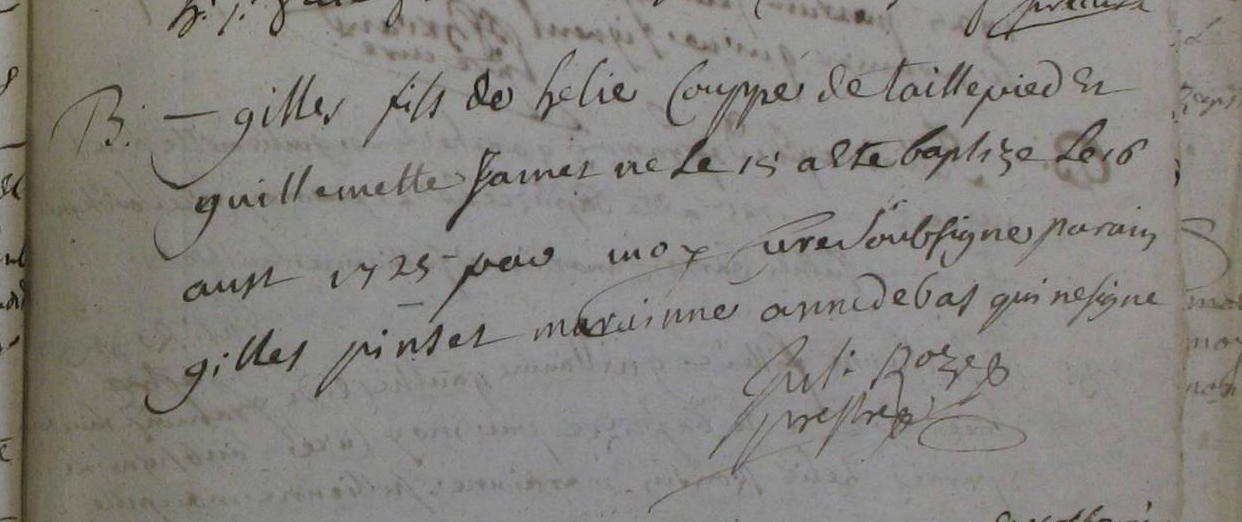 B. — gilles fils de helie Couppé de taillepied Et
guillemette Jamet ne Le 15 a Este baptize Le 16
aust 1725 par moy Curé Soubsigne parain
gilles pinset marainne anne debat qui ne signe
prestre